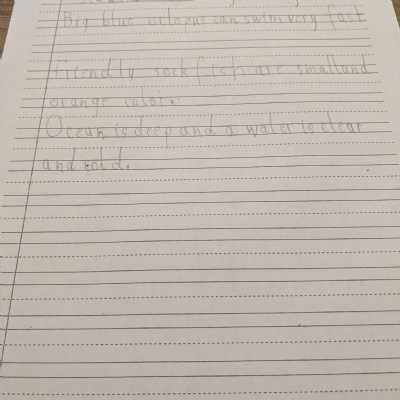 Big blue octopus can swim very fast
Friendly sock fish are small and
orange color.
Ocean is deep and a water is clear
and cold.